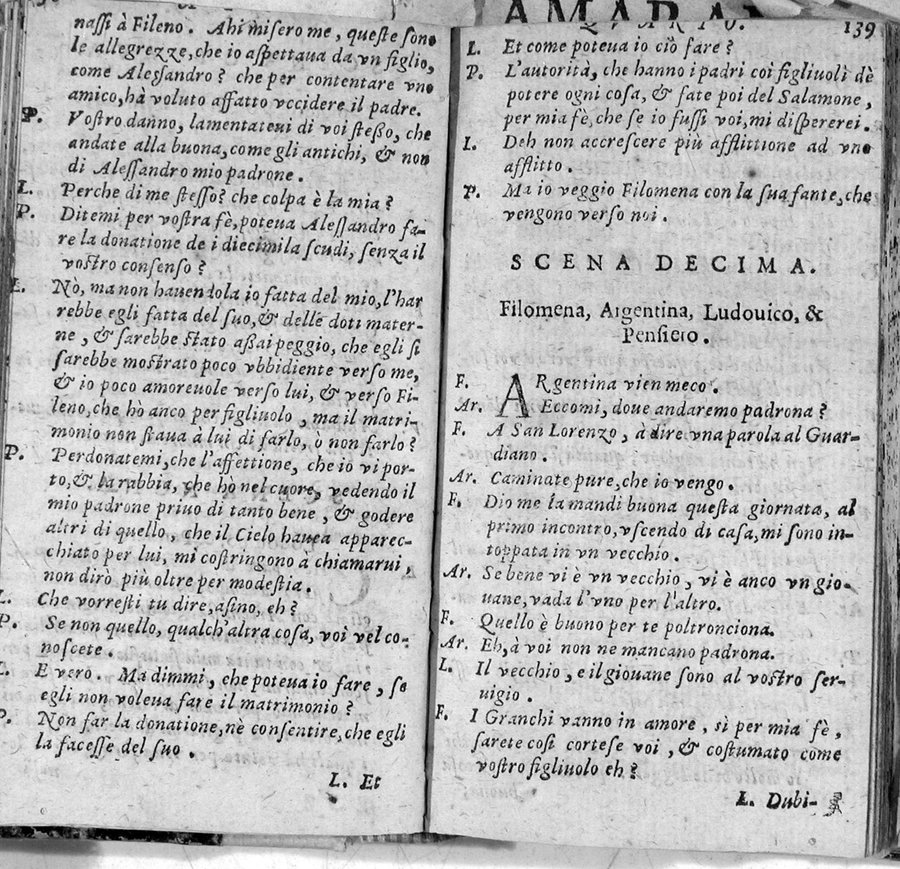 nassi à Fileno. Ahi misero me, queste sono
le allegrezze, che io aspettaua da vn figlio,
come Alessandro? che per contentare vno
amico, hà voluto affatto vccidere il padre.
P. Vostro danno, lamentateui di voi stesso, che
andate alla buona, come gli antichi, & non
di Alessandro mio padrone.
L. Perche di me stesso? che colpa è la mia?
P. Ditemi per vostra fè, poteua Alessandro fa-
re la donatione de i diecimila scudi, senza il
vostro consenso?
L. Nò, ma non hauendola io fatta del mio, l'har
rebbe egli fatta del suo, & delle doti mater-
ne, & sarebbe stato assai peggio, che egli si
sarebbe mostrato poco vbbidiente verso me,
& io poco amoreuole verso lui, & verso Fi-
leno, che hò anco per figliuolo, ma il matri-
monio non staua à lui di farlo, ò non farlo?
P. Perdonatemi, che l'affettione, che io vi por-
to, & la rabbia, che hò nel cuore, vedendo il
mio padrone priuo di tanto bene, & godere
altri di quello, che il Cielo hauea apparec-
chiato per lui, mi costringono à chiamarui,
non dirò più oltre per modestia.
L. Che vorresti tu dire, asino, eh?
P. Se non quello, qualch'altra cosa, voi vel co-
noscete.
L. E vero. Ma dimmi, che poteua io fare, se
egli non voleua fare il matrimonio?
P. Non far la donatione, nè consentire, che egli
la facesse del suo.
L. Et
QVARTO. 139
L. Et come poteua io ciò fare?
P. L'autorità, che hanno i padri coi figliuoli dè
potere ogni cosa, & fate poi del Salamone,
per mia fè, che se io fussi voi, mi dispererei.
L. Deh non accrescere più afflittione ad vno
afflitto.
P. Ma io veggio Filomena con la sua fante, che
vengono verso noi.
SCENA DECIMA.
Filomena, Argentina, Ludouico, &
Pensiero.
F. ARgentina vien meco.
Ar. Eccomi, doue andaremo padrona?
F. A San Lorenzo, à dire vna parola al Guar-
diano.
Ar. Caminate pure, che io vengo.
F. Dio me la mandi buona questa giornata, al
primo incontro, vscendo di casa, mi sono in-
toppata in vn vecchio.
Ar. Se bene vi è vn vecchio, vi è anco vn gio-
uane, vada l'vno per l'altro.
F. Quello è buono per te poltronciona.
Ar. Eh, à voi non ne mancano padrona.
L. Il vecchio, e il giouane sono al vostro ser-
uigio.
F. I Granchi vanno in amore, sì per mia fè,
sarete così cortese voi, & costumato come
vostro figliuolo eh?
L. Dubi-